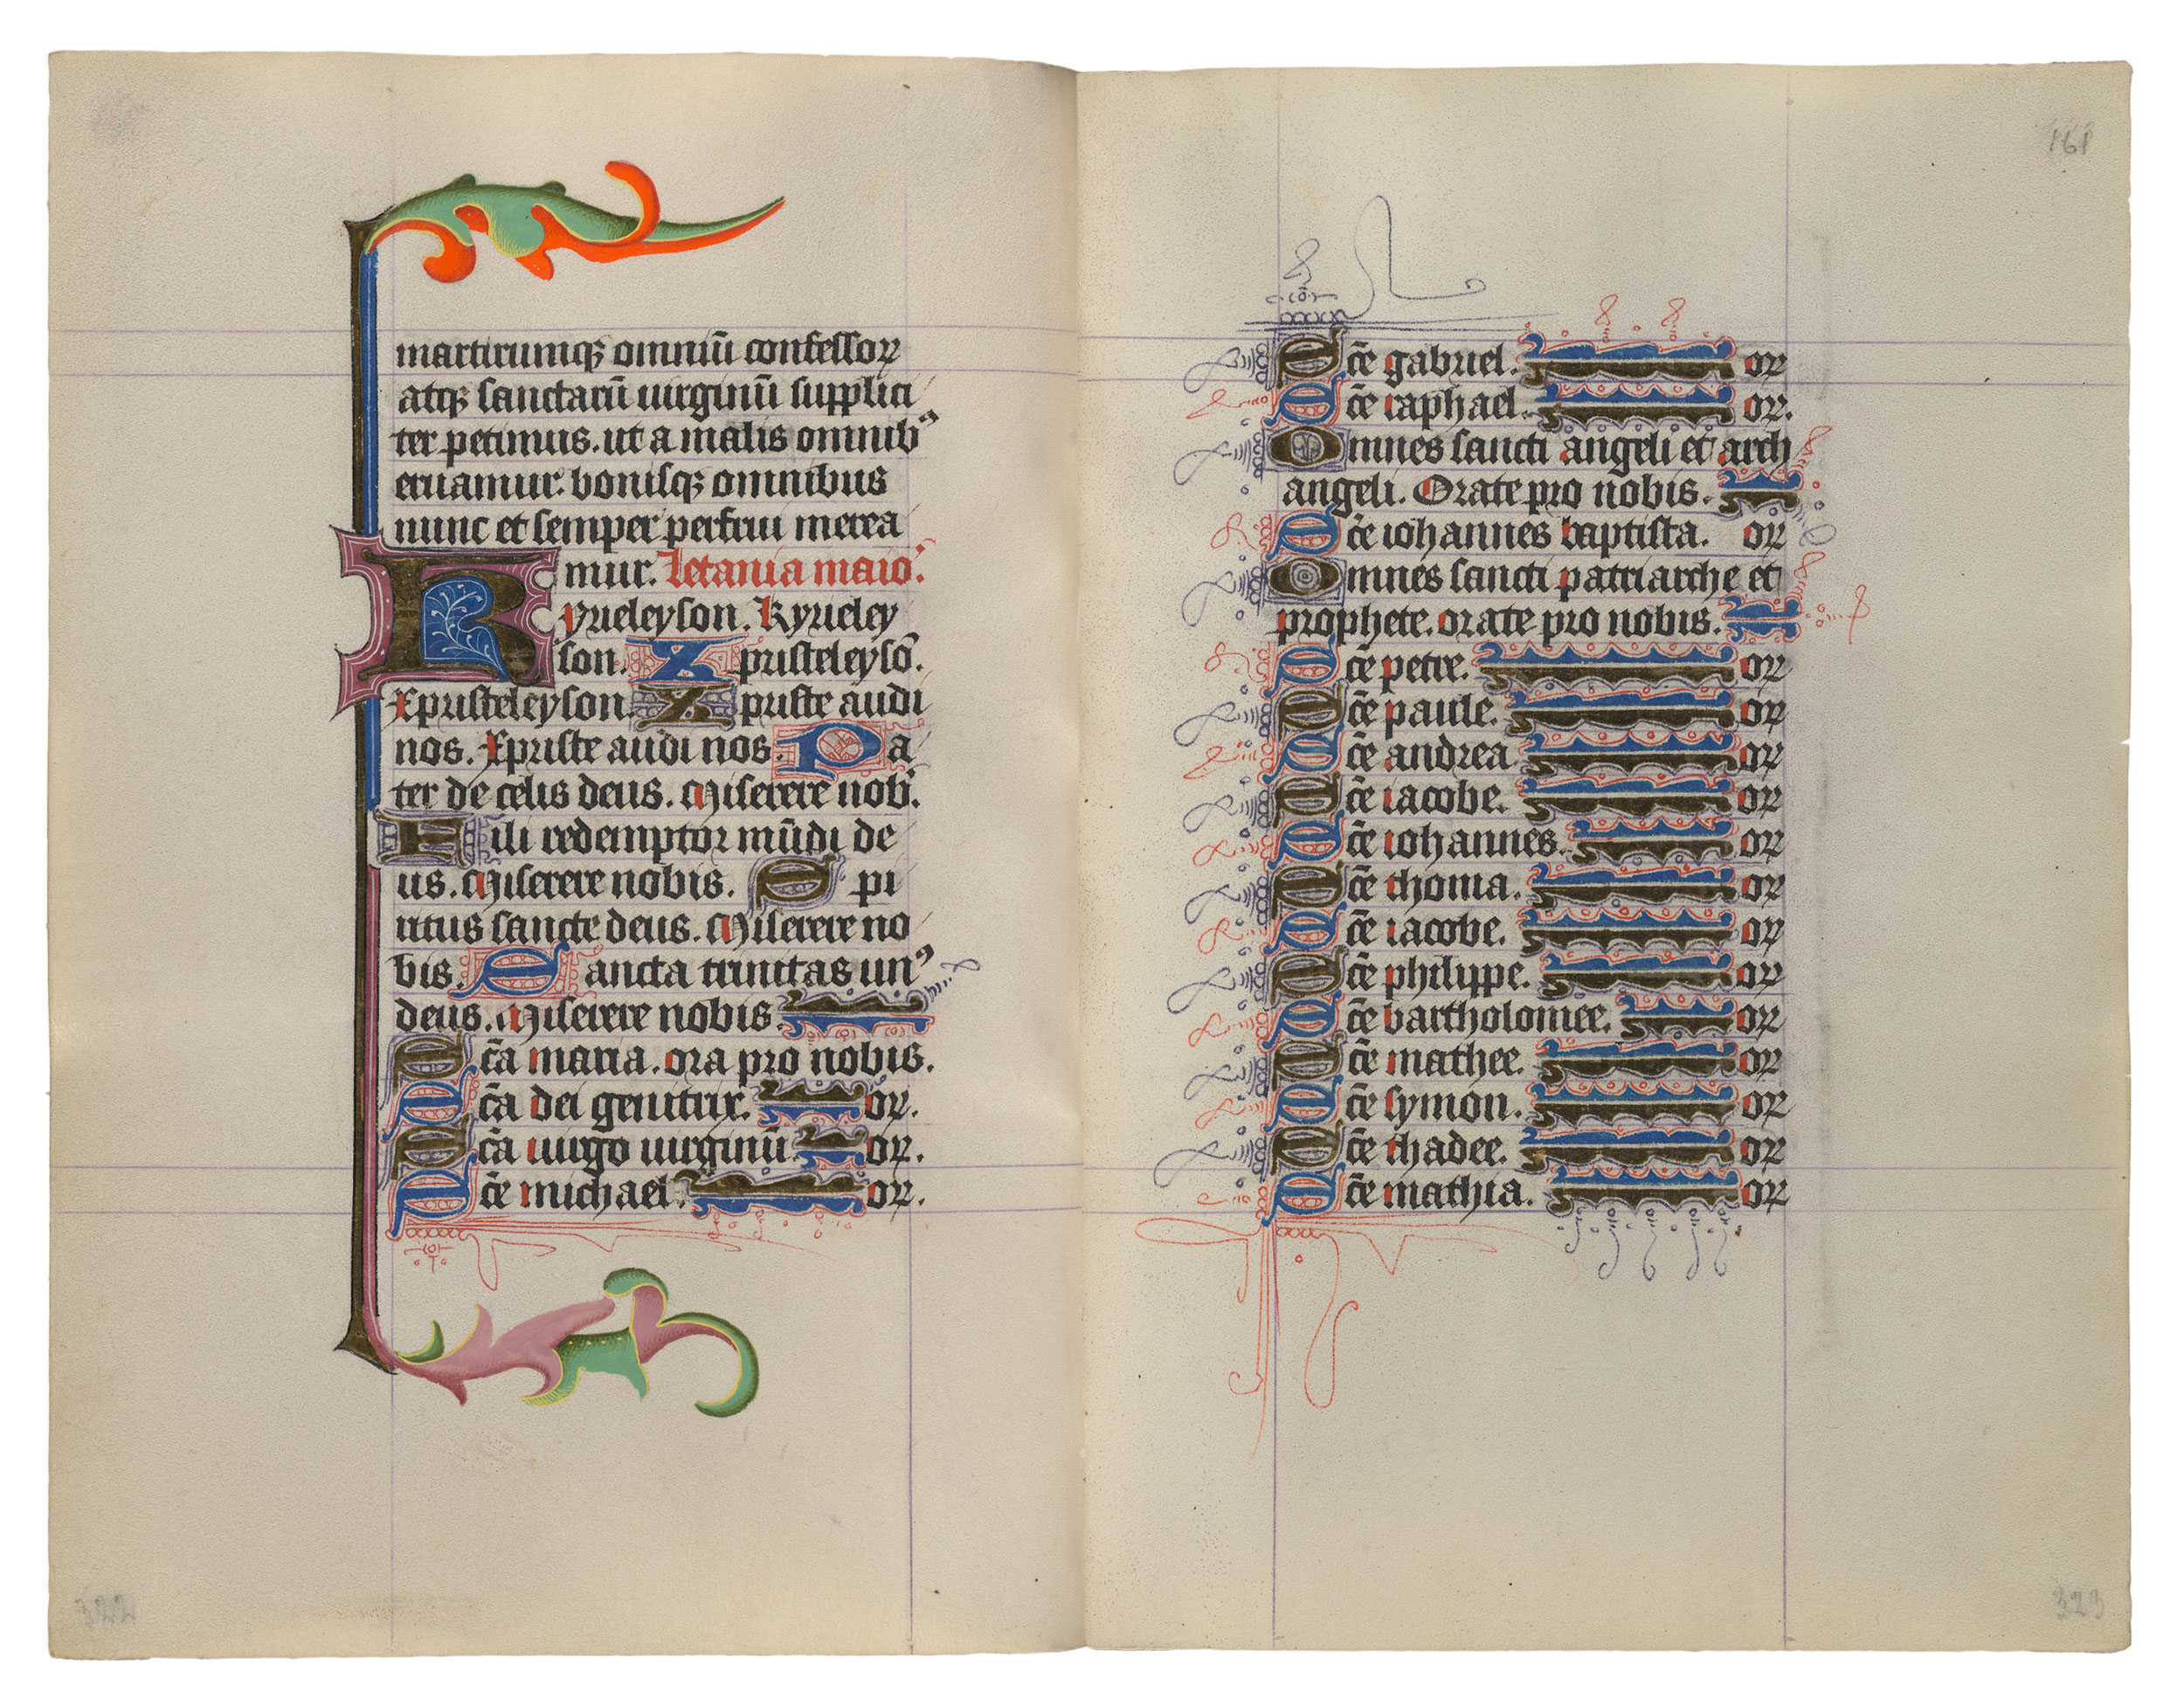 martirumqꝫ omniū confessoꝝ
atqꝫ sanctarū uirginū supplici
ter petimus. ut a malis omnibꝰ
eruamur. bonisqꝫ omnibus
nunc et semper perfrui merea
mur. letania maioꝛ.
Kyrieleyson. Kyrieley
son. Xpristeleysō.
Xpristeleyson. Xpriste audi
nos. Xpriste audi nos. Pa
ter de celis deus. Miserere nob.
Fili redemptor mūdi de
us. Miserere nobis. Spi
ritus sancte deus. Miserere no
bis. Sancta trinitas unꝰ
deus. Miserere nobis.
Scā maria. ora pro nobis.
Scā dei genitrix. oꝝ.
Scā uirgo uirginū. oꝝ.
Scē michael. oꝝ.
322
161
Scē gabriel. oꝝ
Scē raphael. oꝝ.
Omnes sancti angeli et arch
angeli. Orate pro nobis.
Scē iohannes baptista. oꝝ
Omnes sancti patriarche et
prophete. orate pro nobis.
Scē petre. oꝝ
Scē paule. oꝝ
Scē andrea oꝝ
Scē iacobe. oꝝ
Scē iohannes. oꝝ
Scē thoma. oꝝ
Scē iacobe. oꝝ
Scē philippe. oꝝ
Scē bartholomee. oꝝ
Scē mathee. oꝝ
Scē symon. oꝝ
Scē thadee. oꝝ
Scē mathia. oꝝ
323